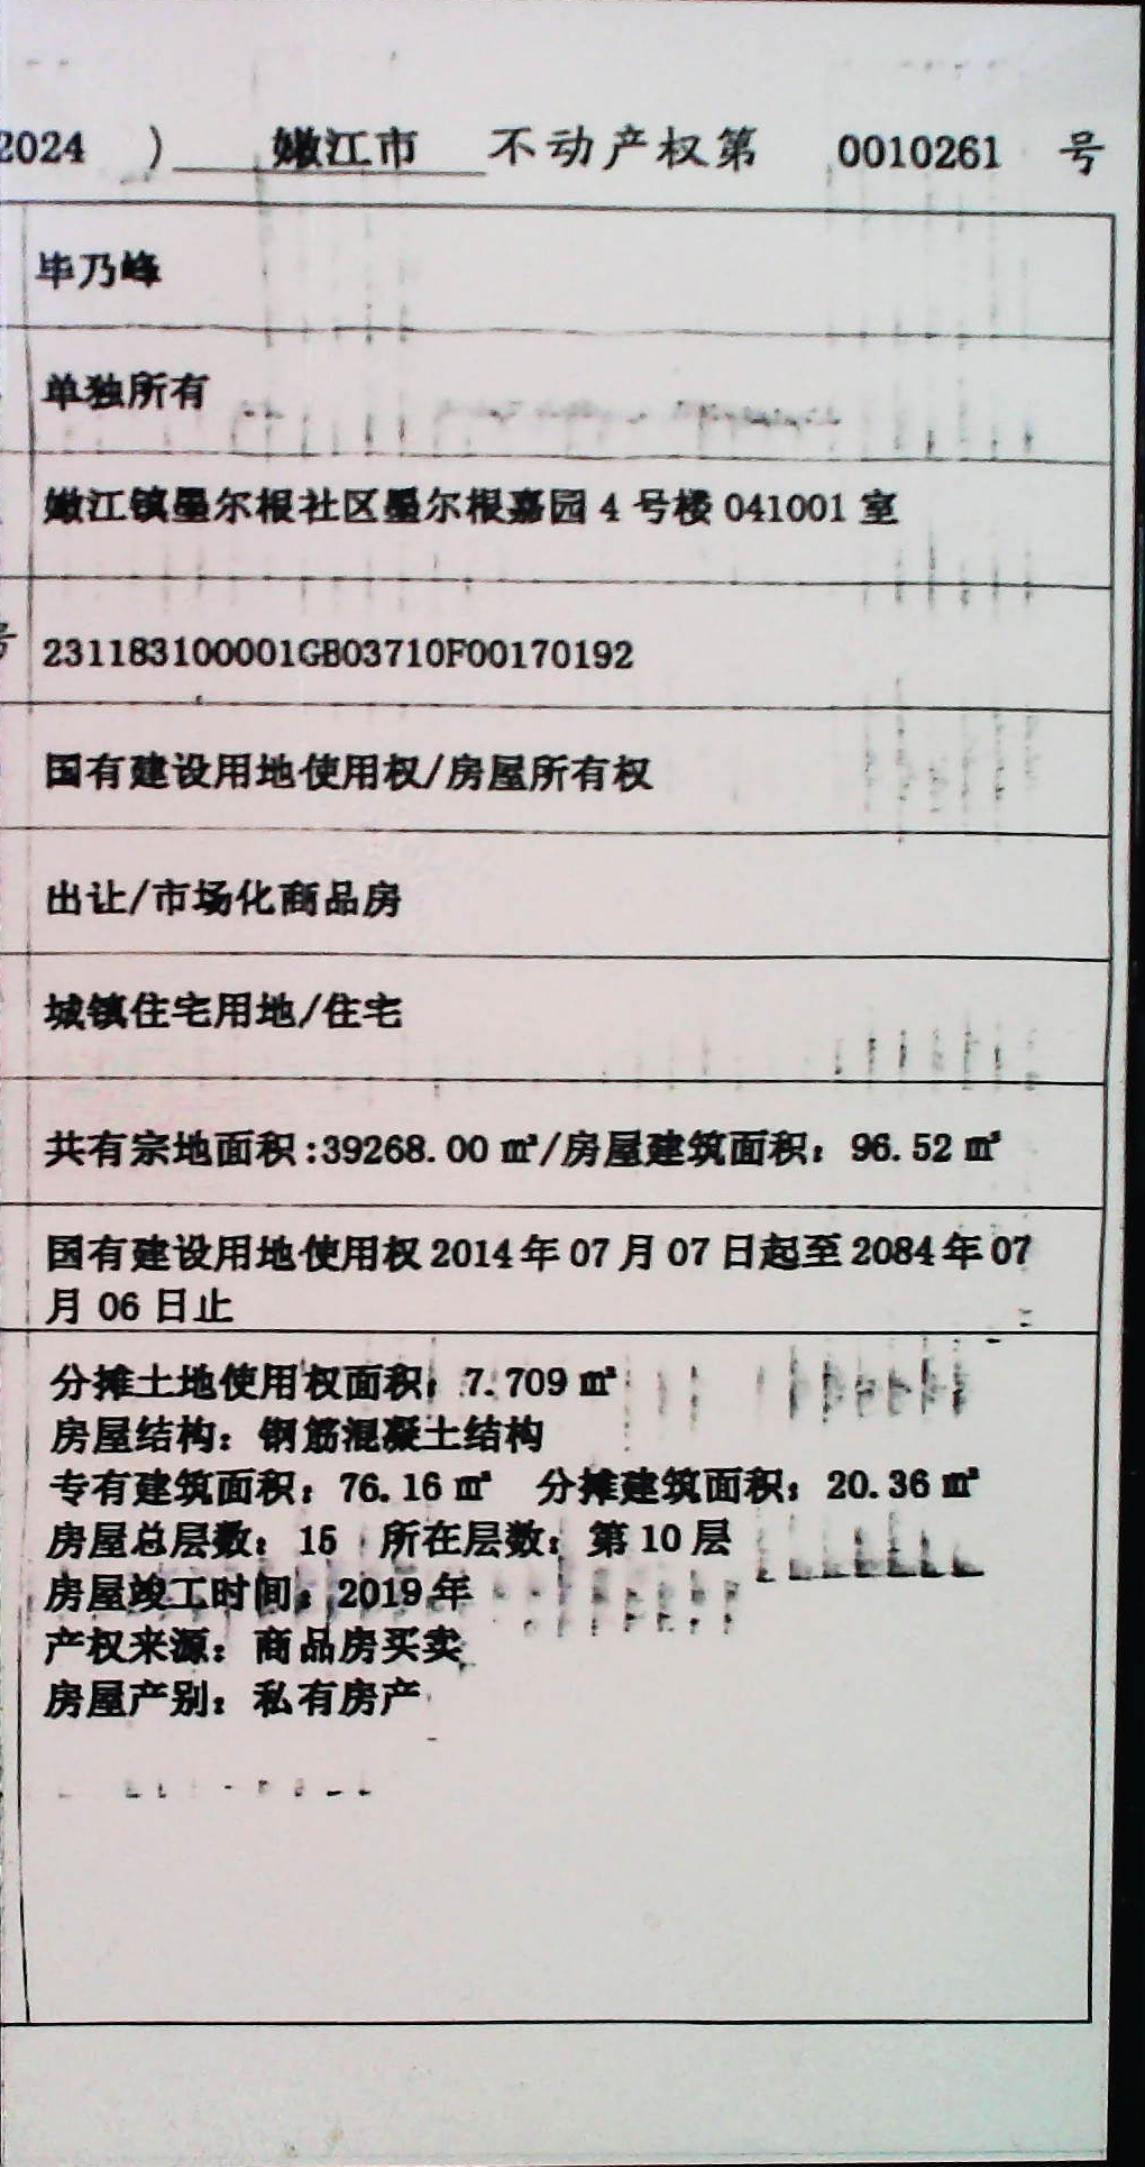 2024 ) 嫩江市 不动产权第 0010261 号
毕乃峰
单独所有
嫩江镇墨尔根社区墨尔根嘉园 4 号楼 041001 室
号 231183100001GB03710F00170192
国有建设用地使用权/房屋所有权
出让/市场化商品房
城镇住宅用地/住宅
共有宗地面积:39268.00 ㎡/房屋建筑面积：96.52 ㎡
国有建设用地使用权 2014 年 07 月 07 日起至 2084 年 07
月 06 日止
分摊土地使用权面积：7.709 ㎡
房屋结构：钢筋混凝土结构
专有建筑面积：76.16 ㎡ 分摊建筑面积：20.36 ㎡
房屋总层数：15 所在层数：第 10 层
房屋竣工时间：2019 年
产权来源：商品房买卖
房屋产别：私有房产